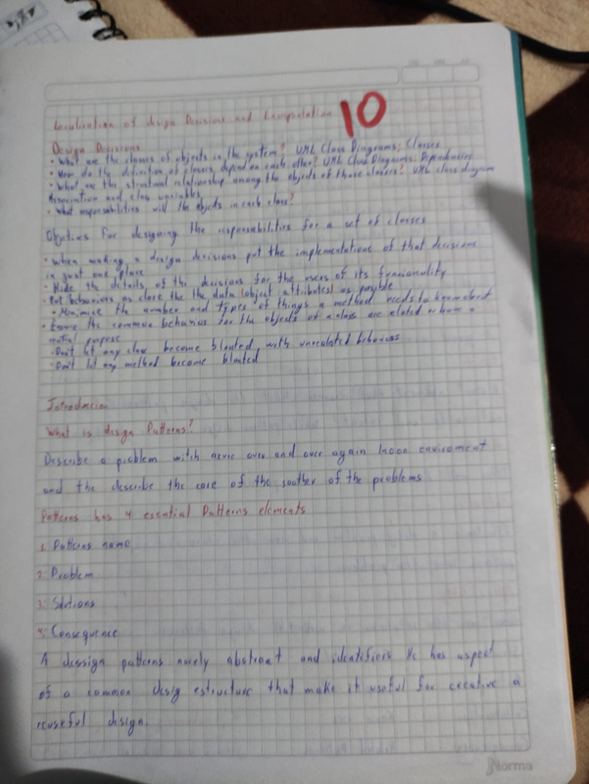 Localization of design Decisions and Encapsulation
10
Design Decisions
• What are the classes of objects in the system? UML Class Diagrams: Classes
• How do the definition of classes depend on each other? UML Class Diagrams: Dependencies
• What are the structural relationship among the objects of those classes? UML class diagram
Association and class variables
• What responsabilities will the objects in each class?
Objetives for designing the responsabilities for a set of classes
• When making a design decisions put the implementations of that decisions
in just one place
• Hide the details of the decisions for the users of its
• Put behaviors as close the the data (object attributes) as posible
• Minimize the number and types of things a method needs to know about
• Ensure the common behavios for the objects of a class are related or have a
purpose
• Don't let any class become bloated with unrelated behaviors
• Don't let any method become bloated
Introduccion
What is design Patterns?
Describe a problem witch over and over again enviroment
and the describe the core of the of the problems
Patterns has 4 essential Patterns elements
1. Patterns name
2. Problem
3. Solutions
4. Consequence
A dessign patterns abstract and identifiers has aspect
of a common desig estructure that make it useful for creative a
reuseful design.
Norma